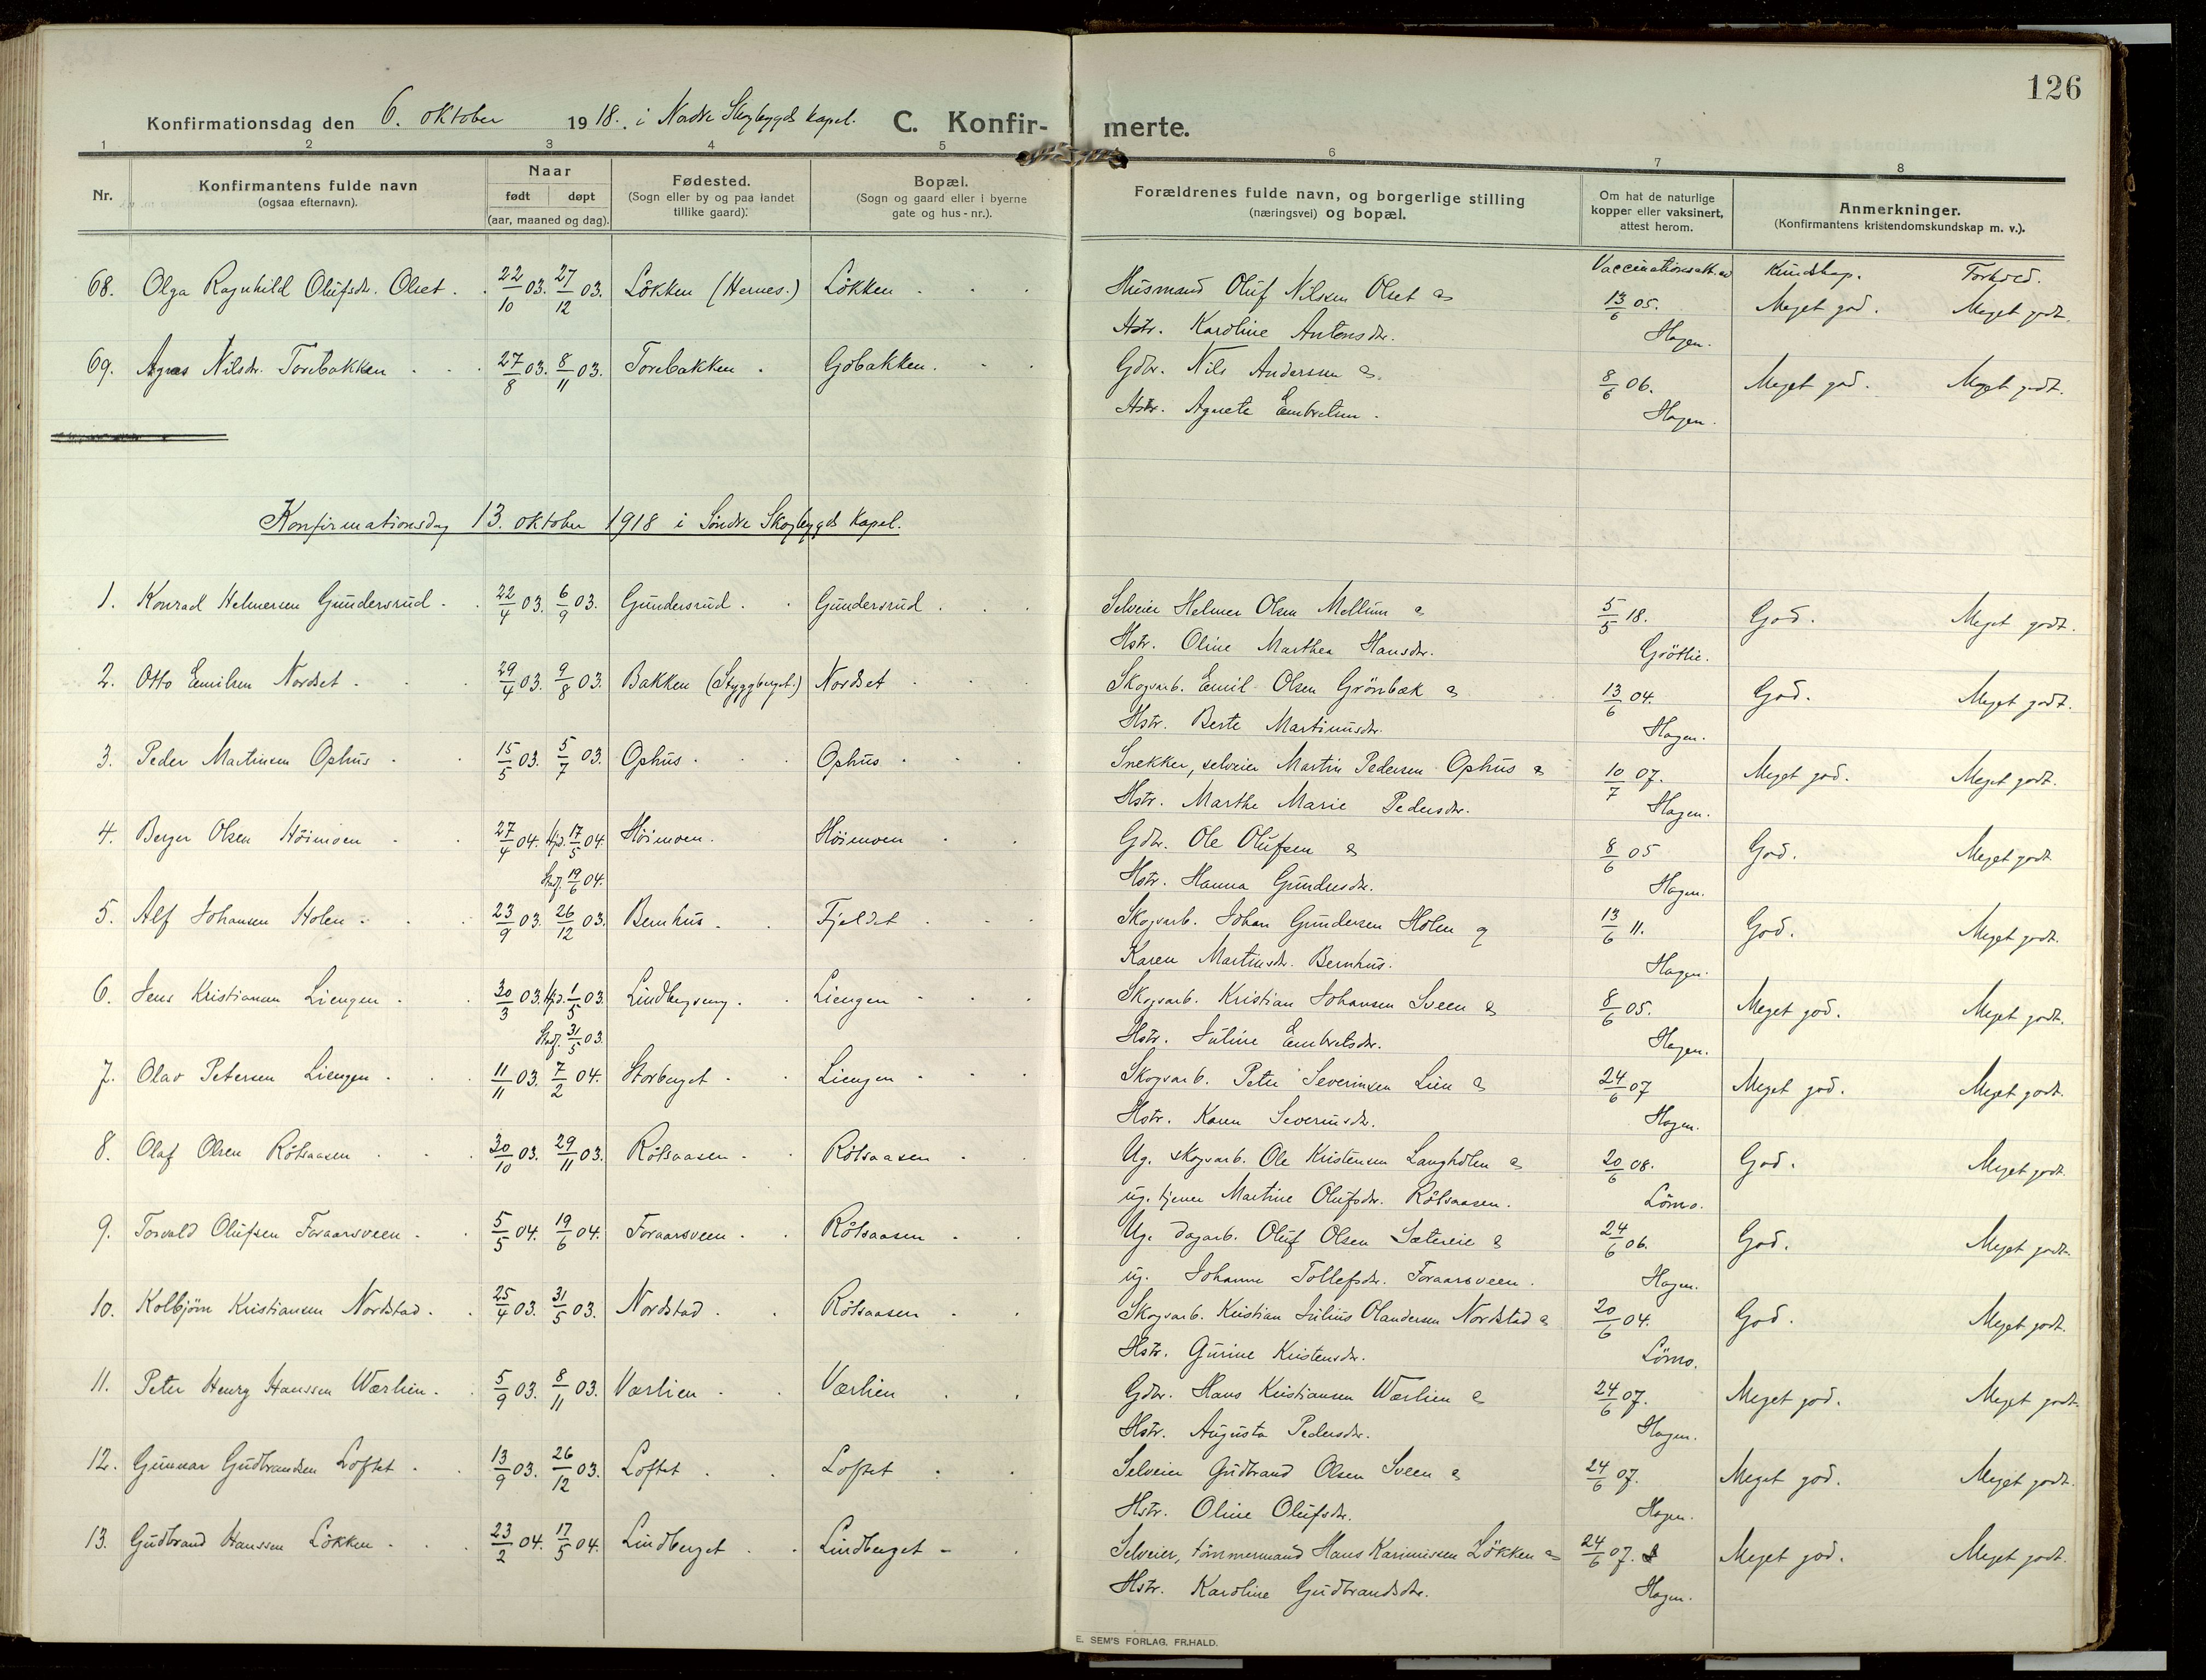 126
Konfirmationsdag den 6. oktober 1918. i Nordre Skogbygds kapel. C. Konfir- merte.
1 2 3 4 5 6 7 8
Nr. Konfirmantens fulde navn (ogsaa efternavn). Naar født døpt (aar, maaned og dag). Fødested. (Sogn eller by og paa landet tillike gaard). Bopæl. (Sogn og gaard eller i byerne gate og hus-nr.). Forældrenes fulde navn, og borgerlige stilling (næringsvei) og bopæl. Om hat de naturlige kopper eller vaksinert, attest herom. Anmerkninger. (Konfirmantens kristendomskundskap m. v.).
Vaccinationsatt. av Kundskap. Forhold.
68. Olga Ragnhild Olufsdr. Olset. 22/10 03. 27/12 03. Løkken (Hernes.) Løkken Husmand Oluf Nilsen Olset & 13/6 05. Meget god. Meget godt.
Hstr. Karoline Antonsdr. Hagen.
69. Agnes Nilsdr. Torebakken 27/8 03. 8/11 03. Torebakken. Gøbakken. Gdbr. Nils Anderssen & 8/6 06. Meget god. Meget godt.
Hstr. Agnete Embretsen. Hagen.
Konfirmationsdag 13. oktober 1918 i Søndre Skogbygds Kapel.
1. Konrad Helmersen Gundersrud. 22/4 03. 6/9 03. Gundersrud. Gundersrud. Selveier Helmer Olsen Mellum & 5/5 18. God. Meget godt.
Hstr. Oline Marthea Hansdr. Grøttie.
2. Otto Emilsen Nordset. 29/4 03. 9/8 03. Bakken (Styggberget.) Nordset Skogsarb. Emil Olsen Grønbæk & 13/6 04. God. Meget godt.
Hstr. Berte Martinusdr. Hagen.
3. Peder Martinsen Ophus 15/5 03. 5/7 03. Ophus. Ophus. Snekker, selveier Martin Pedersen Ophus & 10/7 07. Meget god. Meget godt.
Hstr. Marthe Marie Pedersdr. Hagen.
4. Berger Olsen Høimoen 27/4 04. Hjd. 17/5 04. Høimoen. Høimoen Gdbr. Ole Olufsen & 8/6 05 God. Meget godt
Stadf. 19/6 04. Hstr. Hanna Gundersdr. Hagen.
5. Alf Johansen Holen. 23/9 03. 26/12 03. Bernhus. Fjeldet Skogsarb. Johan Gundersen Holen og 13/6 11. God. Meget godt.
Karen Martinsdr. Bernhus. Hagen.
6. Jens Kristiansen Liengen. 30/3 03. Hjd. 1/5 03. Lindbergseng. Liengen Skogsarb. Kristian Johansen Sveen & 8/6 05. Meget god. Meget godt.
Stadf. 31/5 03. Hstr. Juline Embretsdr. Hagen.
7. Olav Petersen Liengen. 11/11 03. 7/2 04. Storberget. Liengen Skogsarb. Peter Severinsen Lien & 24/6 07 Meget god. Meget godt.
Hstr. Karen Severinsdr. Hagen.
8. Olaf Olsen Røtsaasen 30/10 03. 29/11 03. Røtsaasen. Røtsaasen Ug. skogsarb. Ole Kristensen Langholen & 20/6 08. God. Meget godt.
ug. tjener Martine Olufsdr. Røtsaasen. Lømo.
9. Torvald Olufsen Foraarsveen. 5/5 04. 19/6 04. Foraarsveen. Røtsaasen Ug. dagarb. Oluf Olsen Sætereie & 24/6 06. God. Meget godt.
ug. Johanne Tollefsdr. Foraarsveen. Hagen.
10. Kolbjørn Kristiansen Nordstad. 25/4 03. 31/5 03. Nordstad. Røtsaasen Skogsarb. Kristian Julius Olandersen Nordstad & 20/6 04. God. Meget godt.
Hstr. Gurine Kristensdr. Lømo.
11. Peter Henry Hanssen Wærlien. 5/9 03. 8/11 03. Værlien Værlien Gdbr. Hans Kristiansen Wærlien & 24/6 07. Meget god. Meget godt.
Hstr. Augusta Pedersdr. Hagen.
12. Gunnar Gudbrandsen Loftet 13/9 03. 26/12 03. Loftet Loftet Selveier Gudbrand Olsen Sveen & 24/6 07. Meget god. Meget godt.
Hstr. Oline Olufsdr. Hagen.
13. Gudbrand Hanssen Løkken 23/2 04. 17/5 04. Lindberget Lindberget Selveier, tømmermand Hans Karinusen Løkken & 24/6 07. Meget god. Meget godt.
Hstr. Karoline Gudbrandsdr. Hagen.
E. SEM'S FORLAG. FR.HALD.